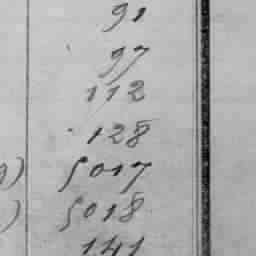 91
97
112
128
) 5017
) 5018
141